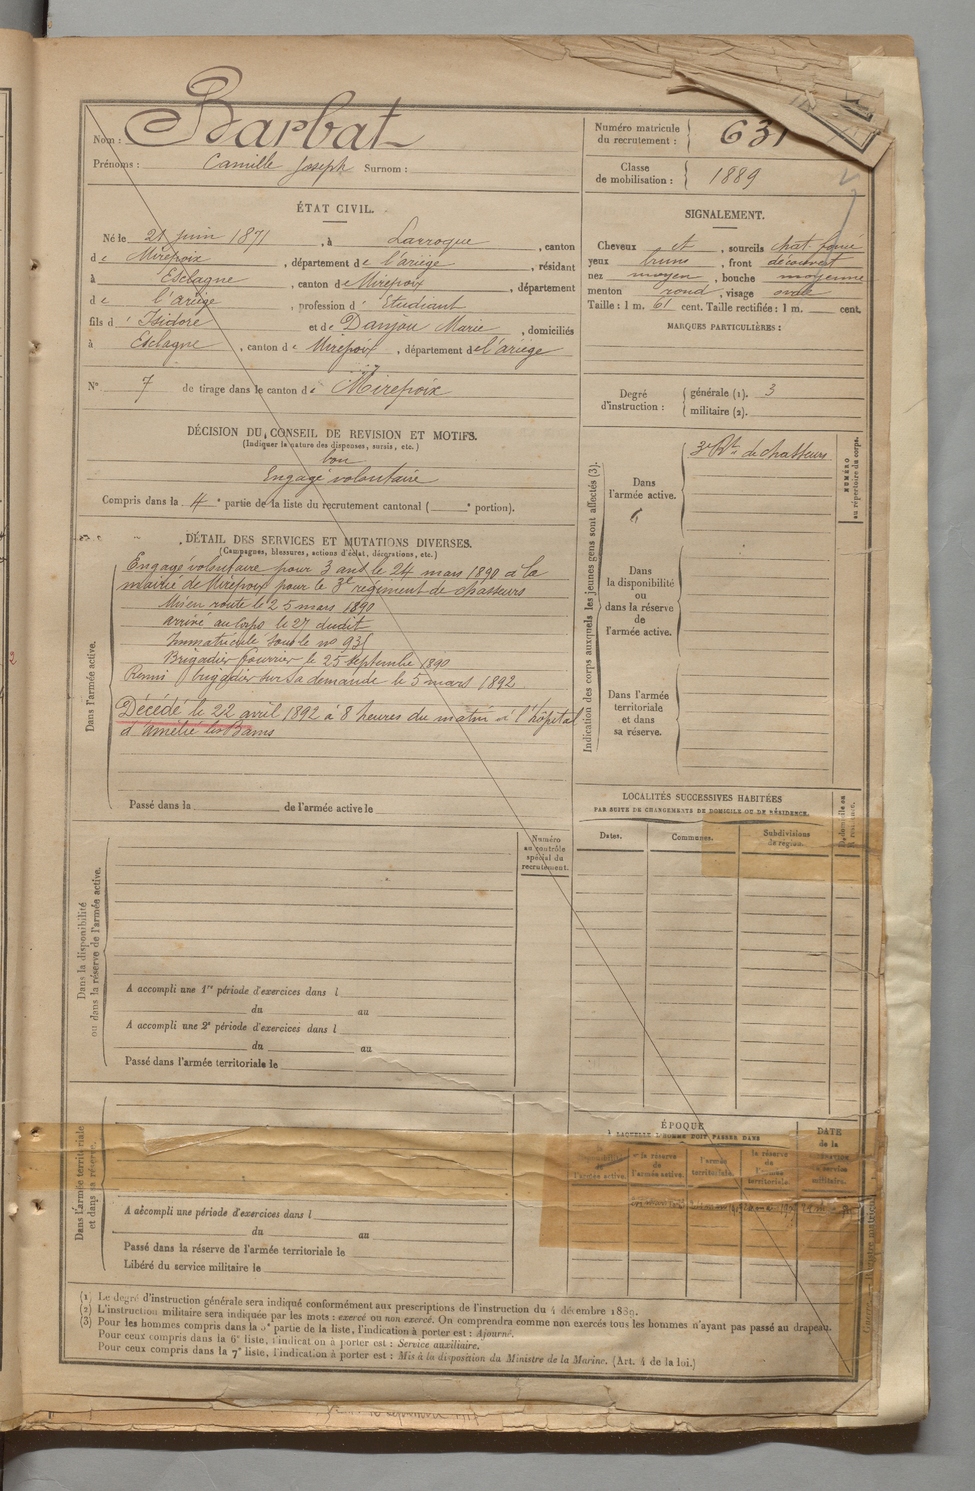 Nom : Barbat
Prénoms : Camille Joseph Surnom :
Numéro matricule du recrutement : 631
Classe de mobilisation : 1889
ÉTAT CIVIL.
Né le 21 juin 1871, à Larroque, canton
de Mirepoix, département de l'ariège, résidant
à Esclagne, canton de Mirepoix, département
de l'ariège, profession d'Etudiant
fils d'Isidore et de Danjou Marie, domiciliés
à Esclagne, canton de Mirepoix, département de l'ariège
N° 7 de tirage dans le canton de Mirepoix
SIGNALEMENT.
Cheveux et, sourcils chat. foncé
yeux bruns, front découvert
nez moyen, bouche moyenne
menton rond, visage ovale
Taille : 1 m. 61 cent. Taille rectifiée : 1 m. cent.
MARQUES PARTICULIÈRES :
DÉCISION DU CONSEIL DE REVISION ET MOTIFS.
(Indiquer la nature des dispenses, sursis, etc.)
bon
Engagé volontaire
Compris dans la 4e partie de la liste du recrutement cantonal ( e portion).
Degré d'instruction : générale (1). 3
militaire (2).
DÉTAIL DES SERVICES ET MUTATIONS DIVERSES.
(Campagnes, blessures, actions d'éclat, décorations, etc.)
Dans l'armée active.
Engagé volontaire pour 3 ans le 24 mars 1890 à la
mairie de Mirepoix pour le 3e régiment de chasseurs
Mis en route le 25 mars 1890
arrivé au corps le 27 dudit
Immatricule sous le no 935
Brigadier fourrier le 25 septembre 1890
Remis brigadier sur sa demande le 5 mars 1892
Décédé le 22 avril 1892 à 8 heures du matin à l'hôpital
d'amélie les Bains
Passé dans la de l'armée active le
Indication des corps auxquels les jeunes gens sont affectés (3).
NUMÉRO au répertoire du corps.
Dans l'armée active.
3e Rt de chasseurs
Dans la disponibilité ou dans la réserve de l'armée active.
Dans l'armée territoriale et dans sa réserve.
LOCALITÉS SUCCESSIVES HABITÉES
PAR SUITE DE CHANGEMENTS DE DOMICILE OU DE RÉSIDENCE.
Dates. Communes. Subdivisions de région.
Numéro au contrôle spécial du recrutement.
Dans la disponibilité ou dans la réserve de l'armée active.
A accompli une 1re période d'exercices dans l
du au
A accompli une 2e période d'exercices dans l
du au
Passé dans l'armée territoriale le
Dans l'armée territoriale et dans sa réserve.
A accompli une période d'exercices dans l
du au
Passé dans la réserve de l'armée territoriale le
Libéré du service militaire le
ÉPOQUE
À LAQUELLE L'HOMME DOIT PASSER DANS
la réserve de l'armée active.
l'armée territoriale.
la réserve de l'armée territoriale.
DATE de la libération du service militaire.
(1) Le degré d'instruction générale sera indiqué conformément aux prescriptions de l'instruction du 4 décembre 1889.
(2) L'instruction militaire sera indiquée par les mots : exercé ou non exercé. On comprendra comme non exercés tous les hommes n'ayant pas passé au drapeau.
(3) Pour les hommes compris dans la 5e partie de la liste, l'indication à porter est : Ajourné.
Pour ceux compris dans la 6e liste, l'indication à porter est : Service auxiliaire.
Pour ceux compris dans la 7e liste, l'indication à porter est : Mis à la disposition du Ministre de la Marine. (Art. 4 de la loi.)